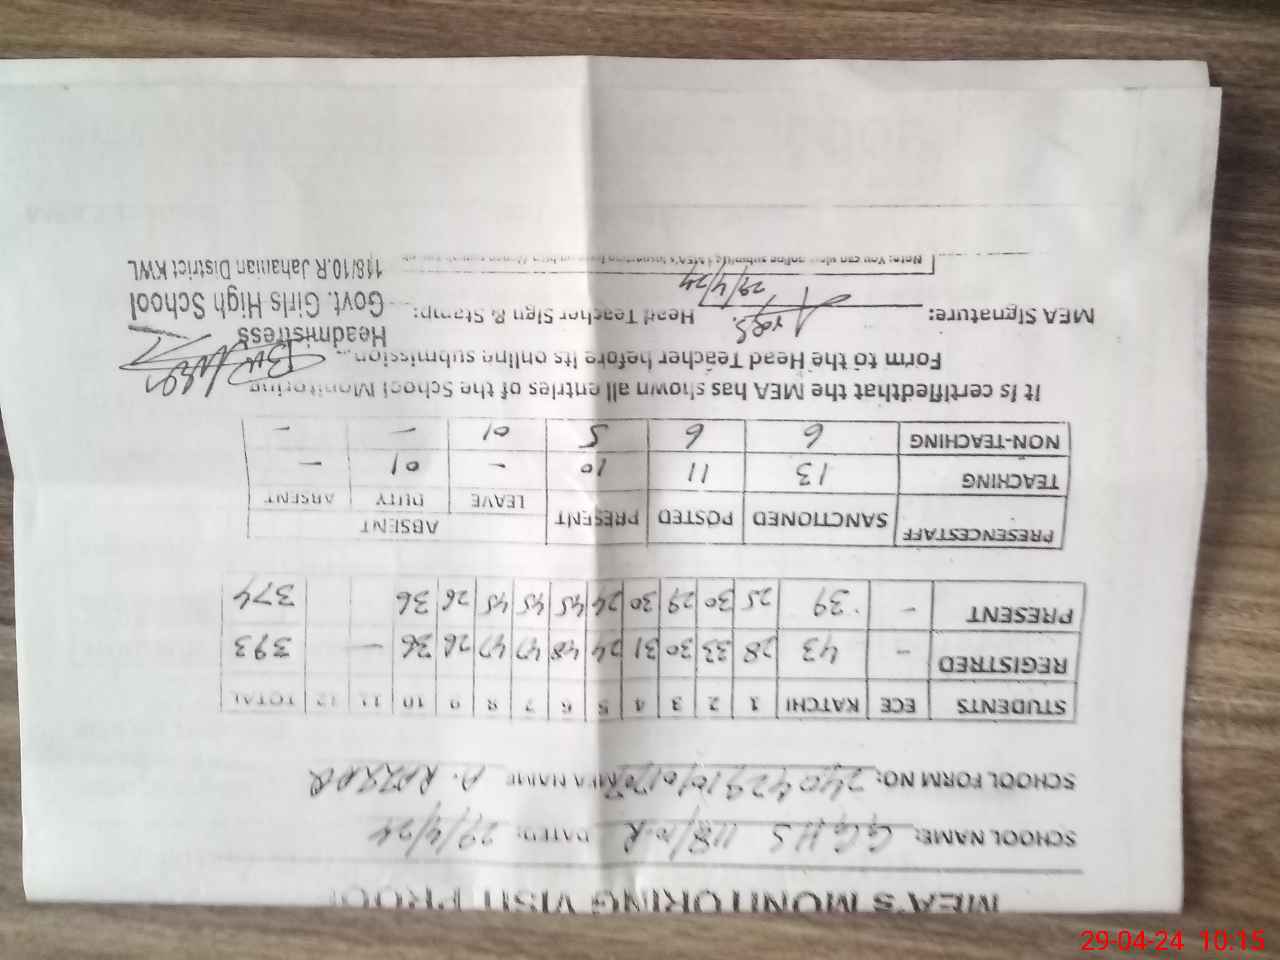 MEA'S MONITORING VISIT PROOF
SCHOOL NAME: G.G.H.S 118/10-R DATED: 29/4/24
SCHOOL FORM NO: MEA NAME A. RAZZAQ
STUDENTS ECE KATCHI 1 2 3 4 5 6 7 8 9 10 11 12 TOTAL
REGISTRED - 43 28 33 30 31 24 48 47 47 26 36 — 393
PRESENT - 39 25 30 29 30 24 45 45 45 26 36 374
PRESENCESTAFF SANCTIONED POSTED PRESENT ABSENT
LEAVE DUTY ABSENT
TEACHING 13 11 10 - 01 -
NON-TEACHING 6 6 5 01 - -
It is certifiedthat the MEA has shown all entries of the School Monitoring
Form to the Head Teacher before its online submission
Headmistress
MEA Signature: Head Teacher Sign & Stamp: Govt. Girls High School
29/4/24
118/10.R Jahanian District KWL
Note: You can
29-04-24 10:15